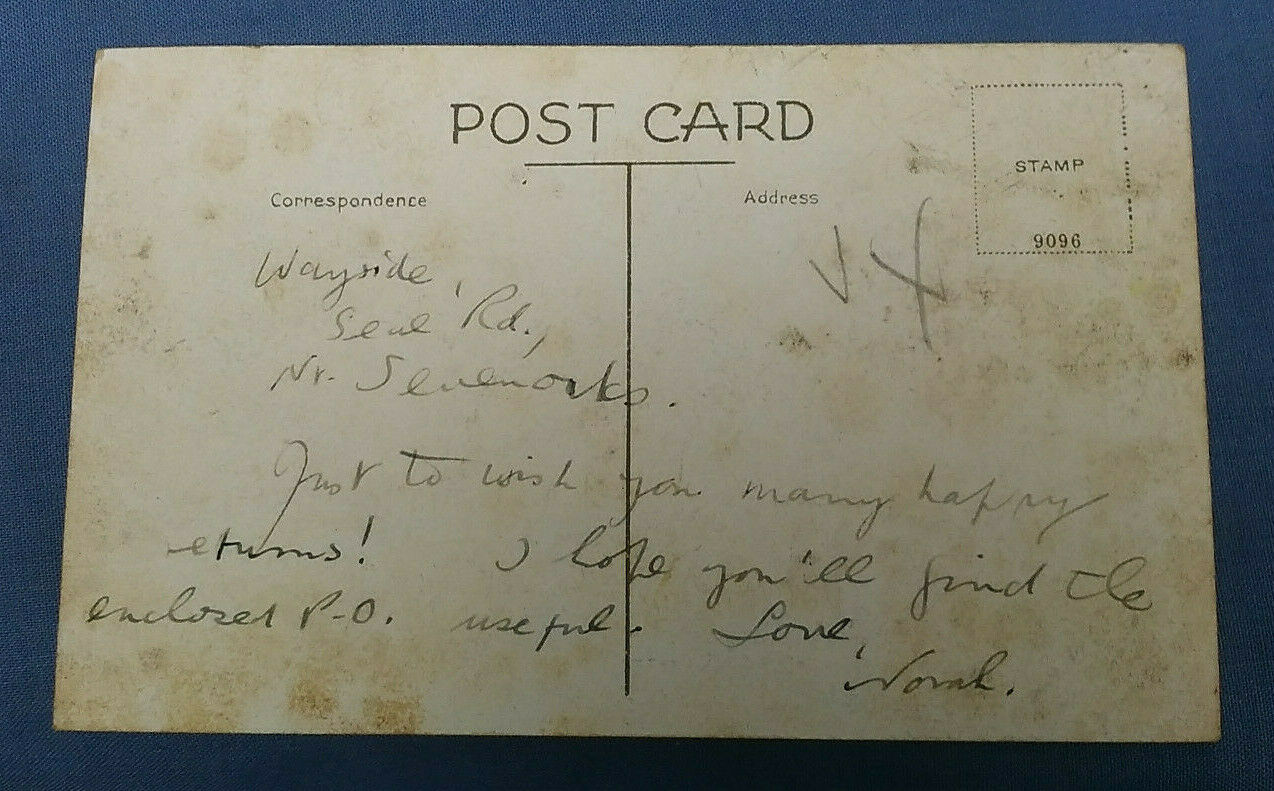 POST CARD
Correspondence
Address
STAMP
9096
Wayside,
Seal Rd.,
Nr. Sevenoaks.
Just to wish you many happy
returns! I hope you'll find the
enclosed P.O. useful. Love,
Norah.